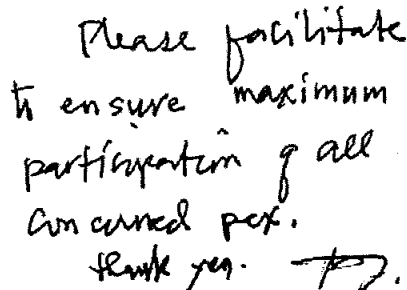 Please facilitate
to ensure maximum
participation of all
concerned pax.
thank you.